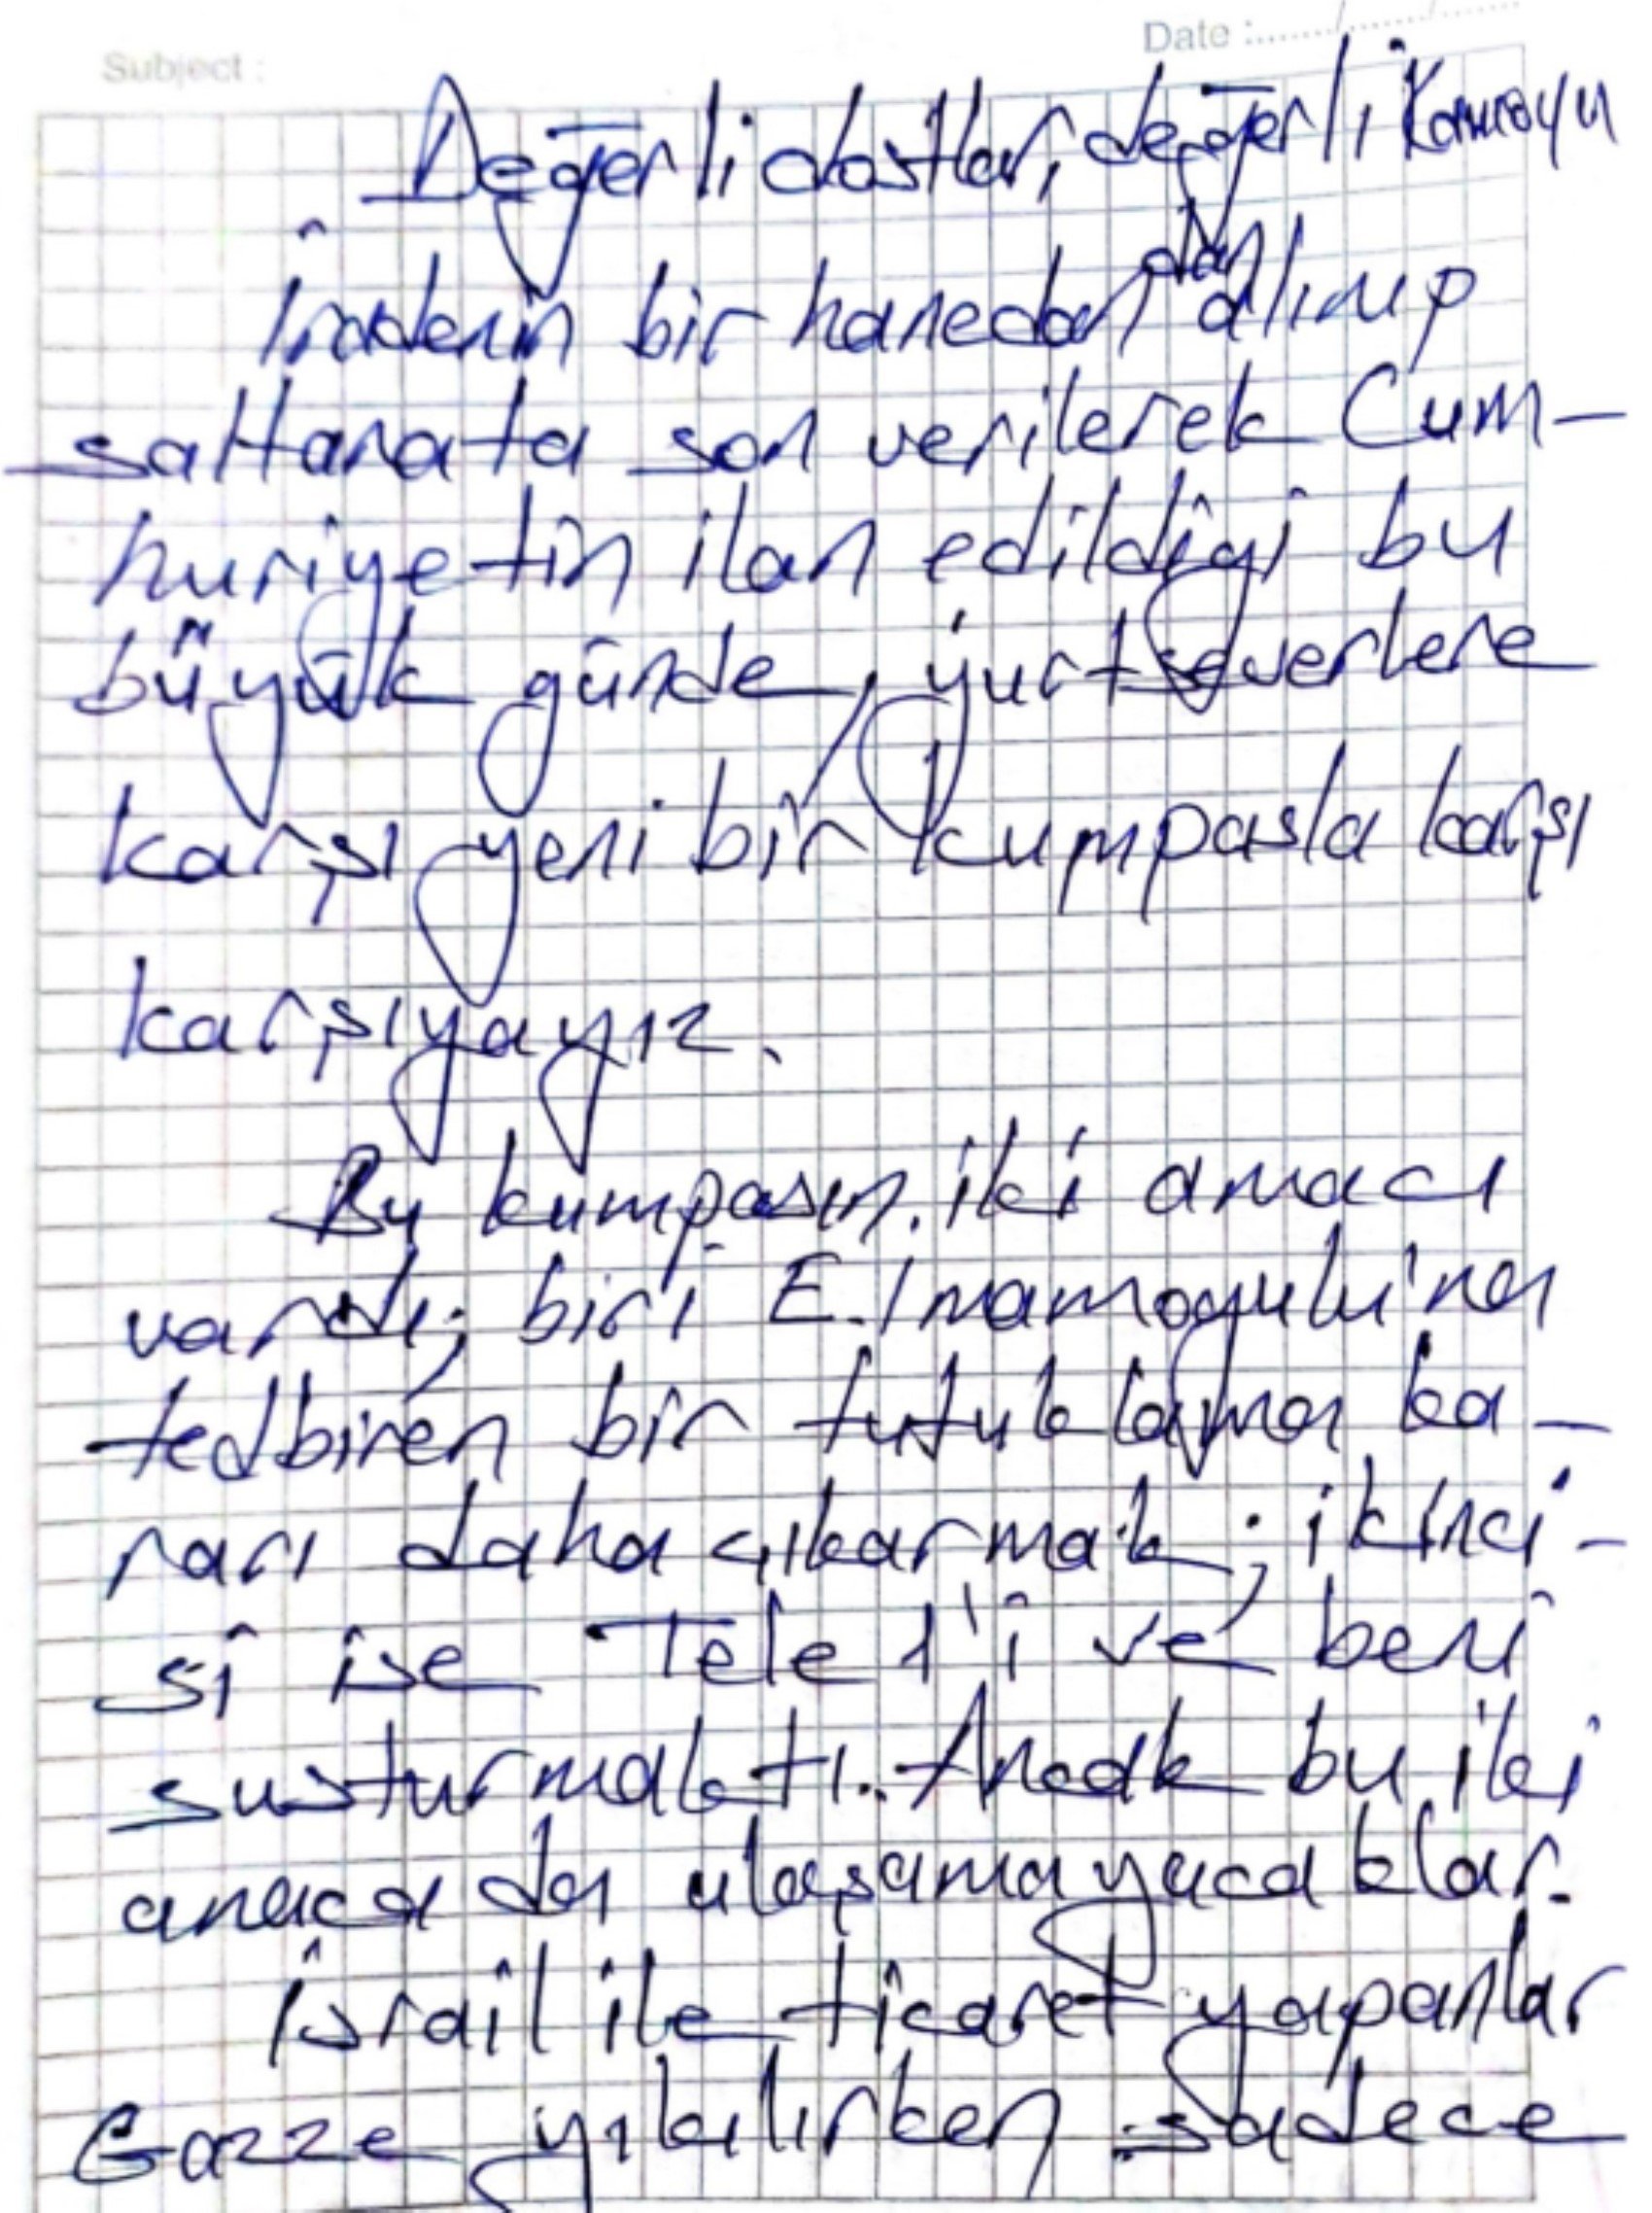 Subject :
Date :....../....../......
Değerli dostlar, değerli Kamuoyu
İradenin bir hanedandan alınıp
saltanata son verilerek Cum-
huriyetin ilan edildiği bu
büyük günde, yurtseverlere
karşı yeni bir kumpasla karşı
karşıyayız.
Bu kumpasın iki amacı
vardı; biri E. İmamoğulu'na
tedbiren bir tutuklama ka-
rarı daha çıkarmak; ikinci-
si ise Tele 1'i ve beni
susturmaktı. Ancak bu iki
amaca da ulaşamayacaklar.
İsrail ile ticaret yapanlar
Gazze yıkılırken sadece